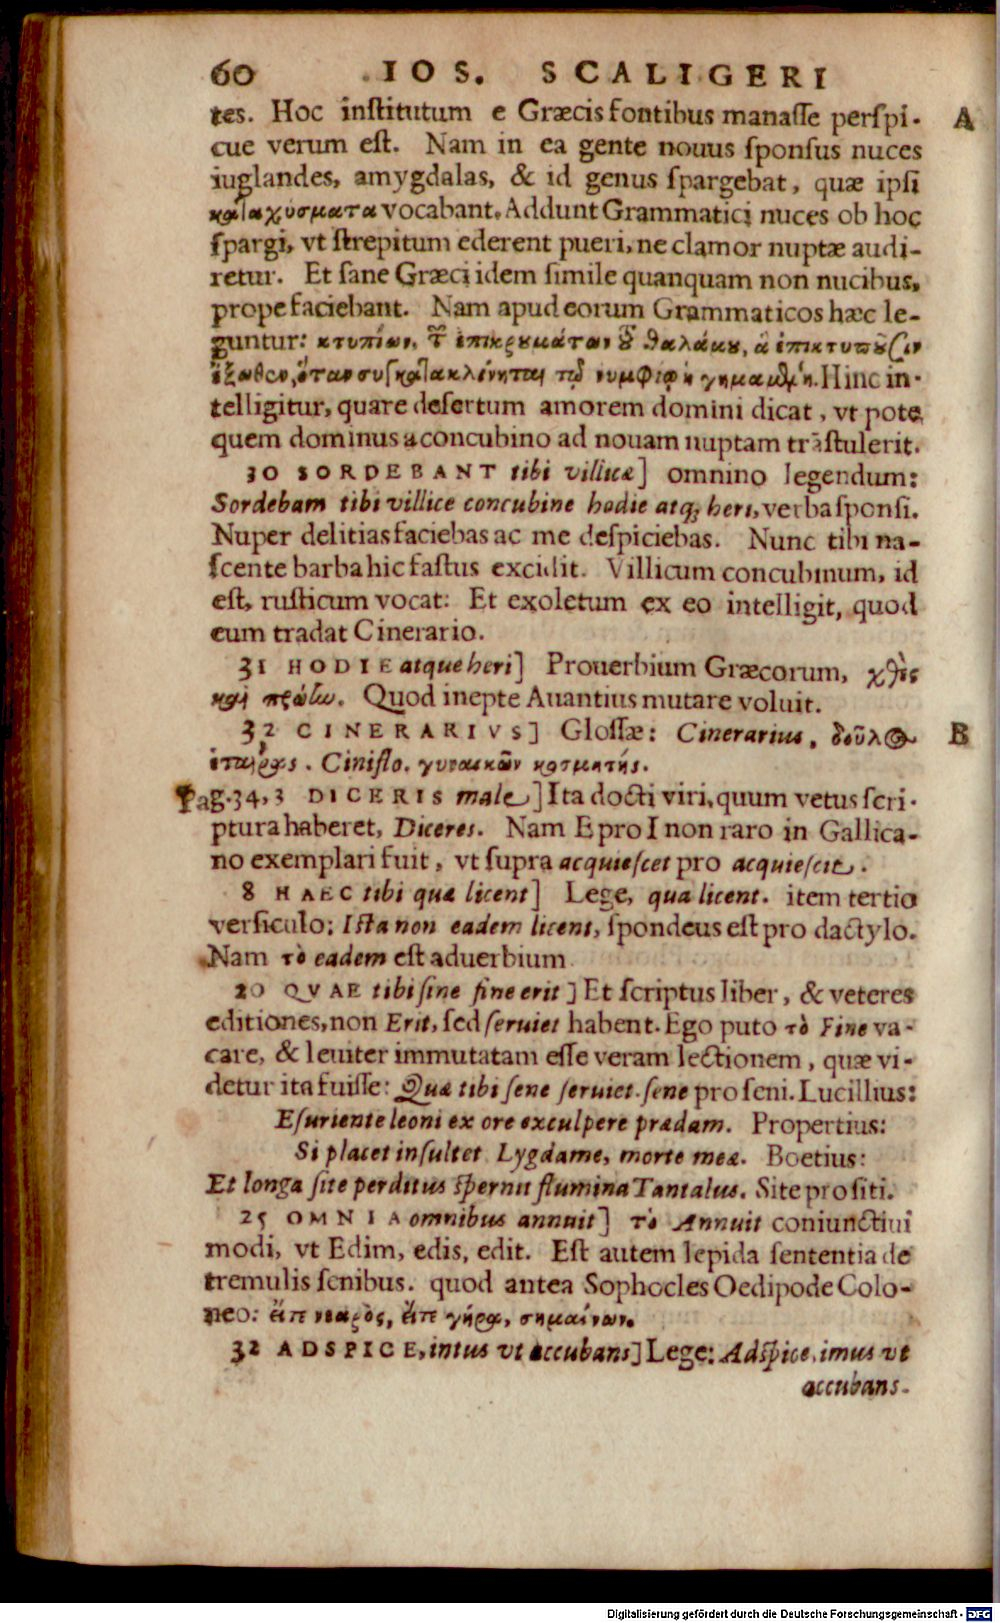 60 IOS. SCALIGERI
tes. Hoc institutum e Græcis fontibus manasse perspi- A
cue verum est. Nam in ea gente nouus sponsus nuces
iuglandes, amygdalas, & id genus spargebat, quæ ipsi
καταχύσματα vocabant. Addunt Grammatici nuces ob hoc
spargi, vt strepitum ederent pueri, ne clamor nuptæ audi-
retur. Et sane Græci idem simile quanquam non nucibus,
prope faciebant. Nam apud eorum Grammaticos hæc le-
guntur: κτυπίων, τ ἐπικρουμάτων τοῦ θαλάμου, ἃ ἐπικτυποῦσιν
ἔξωθεν, ὅταν συγκατακλίνηται τῷ νυμφίῳ ἡ γημαμένη. Hinc in-
telligitur, quare desertum amorem domini dicat, vt pote
quem dominus a concubino ad nouam nuptam trāstulerit.
30 SORDEBANT tibi villicæ] omnino legendum:
Sordebam tibi villice concubine hodie atq; heri, verba sponsi.
Nuper delitias faciebas ac me despiciebas. Nunc tibi na-
scente barba hic fastus excidit. Villicum concubinum, id
est, rusticum vocat: Et exoletum ex eo intelligit, quod
eum tradat Cinerario.
31 HODIE atque heri] Prouerbium Græcorum, χθὲς
καὶ πρώην. Quod inepte Auantius mutare voluit.
32 CINERARIVS] Glossæ: Cinerarius, δοῦλος
ἑταίρας. Ciniflo. γυναικῶν κοσμητής. B
Pag. 34, 3 DICERIS male] Ita docti viri, quum vetus scri-
ptura haberet, Diceres. Nam E pro I non raro in Gallica-
no exemplari fuit, vt supra acquiescet pro acquiescit.
8 HAEC tibi quæ licent] Lege, qua licent. item tertio
versiculo: Ista non eadem licent, spondeus est pro dactylo.
Nam τὸ eadem est aduerbium
20 QVAE tibi sine fine erit] Et scriptus liber, & veteres
editiones, non Erit, sed seruiet habent. Ego puto τὸ Fine va-
care, & leuiter immutatam esse veram lectionem, quæ vi-
detur ita fuisse: Quæ tibi sene seruiet. sene pro seni. Lucillius:
Esuriente leoni ex ore exculpere prædam. Propertius:
Si placet insultet Lygdame, morte meæ. Boetius:
Et longa site perditus spernit flumina Tantalus. Site pro siti.
25 OMNIA omnibus annuit] τὸ Annuit coniunctiui
modi, vt Edim, edis, edit. Est autem lepida sententia de
tremulis senibus. quod antea Sophocles Oedipode Colo-
neo: εἴτε νεαρὸς, εἴτε γήρᾳ, σημαίνων.
32 ADSPICE, intus vt accubans] Lege: Adspice, imus vt
accubans.
Digitalisierung gefördert durch die Deutsche Forschungsgemeinschaft - DFG